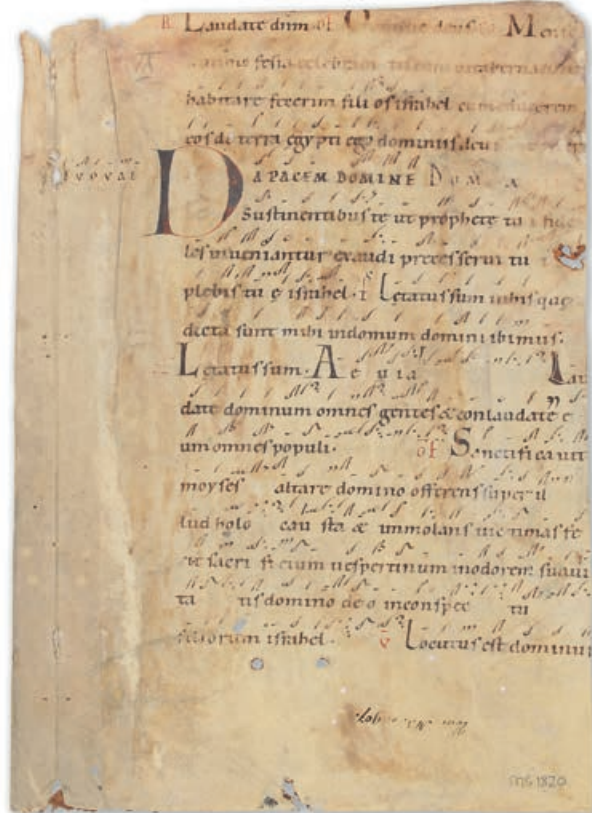 R Laudate dnm of
habitare fecerim fili os israhel cum educerem
eos de terra egypti ego dominus deus
EVOVAE
DA PACEM DOMINE DOM
Sustinentibus te ut prophete tu fide
les inveniantur exaudi preces servi tu
plebis tu e israhel Letatus sum in his que
dicta sunt mihi in domum domini ibimus.
Letatus sum. Ae u ia Lau
date dominum omnes gentes & conlaudate e
um omnes populi. of Sanctificavit
moyses altare domino offerens super il
lud holo cau sta & immolans victimas fe
cit sacri fi cium vespertinum in odorem suavi
ta tis domino de o in conspec tu
filiorum israhel. v Locutus est dominus
MS 1820